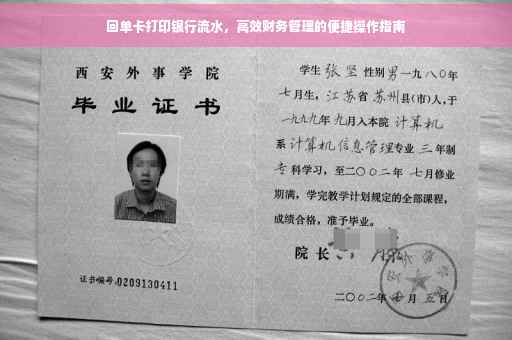 回单卡打印银行流水，高效财务管理的便捷操作指南
西安外事学院
毕业证书
证书编号:0209130411
学生 张坚 性别男一九八〇年
七月生，江苏省苏州县(市)人，于
一九九九年九月入本院 计算机
系计算机信息管理专业 三年制
专科学习，至二〇〇二年 七月修业
期满，学完教学计划规定的全部课程，
成绩合格，准予毕业。
院长
二〇〇二年 月五日